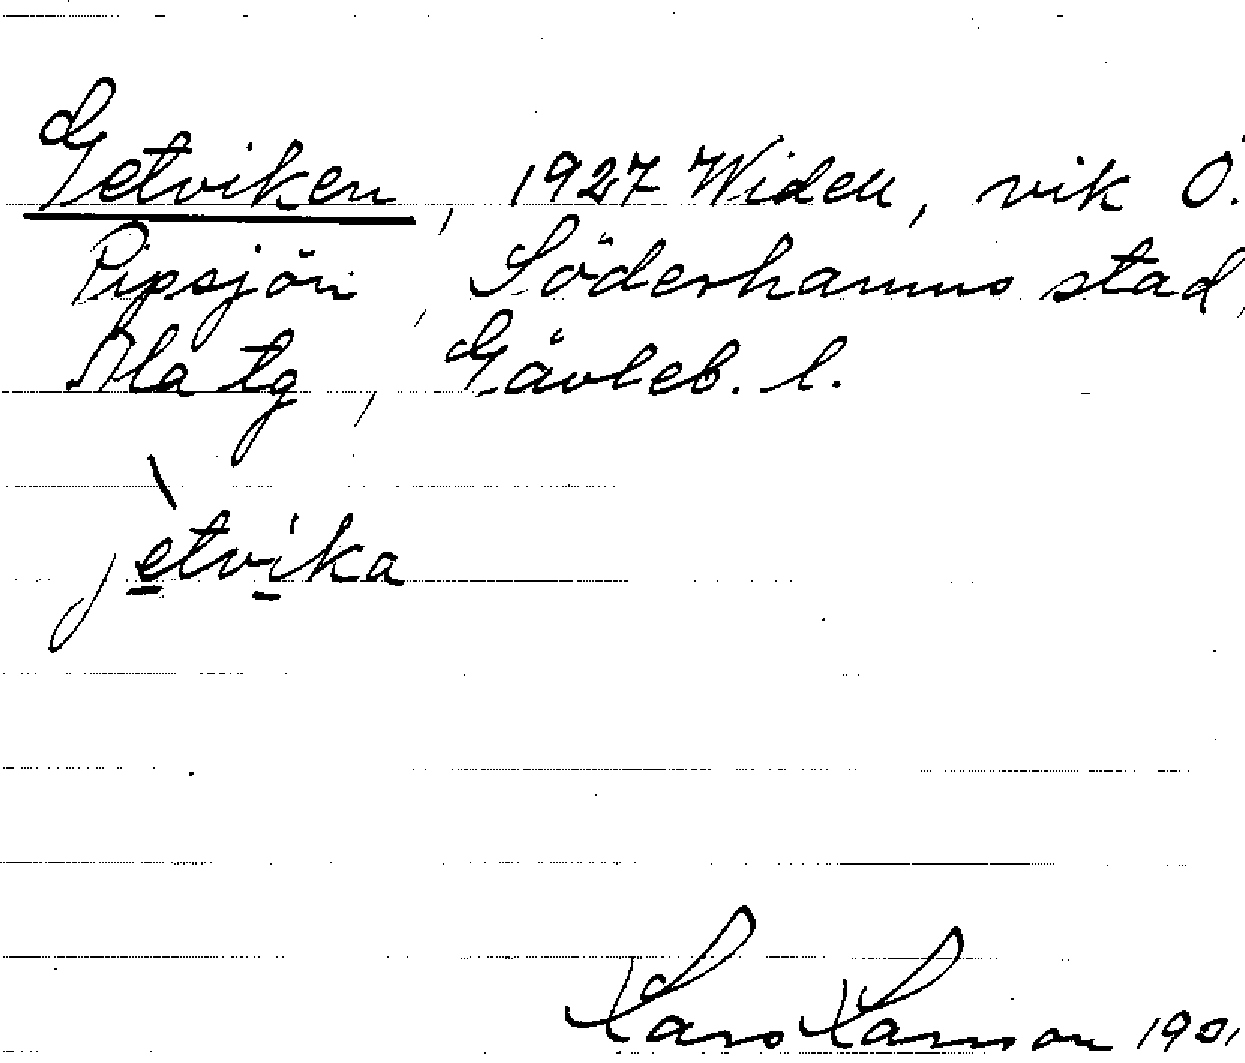 Getviken, 1927 Widell, vik Ö.
Pipsjön, Söderhamns stad,
Ala tg, Gävleb. l.
jètvika
Lars Larsson 19